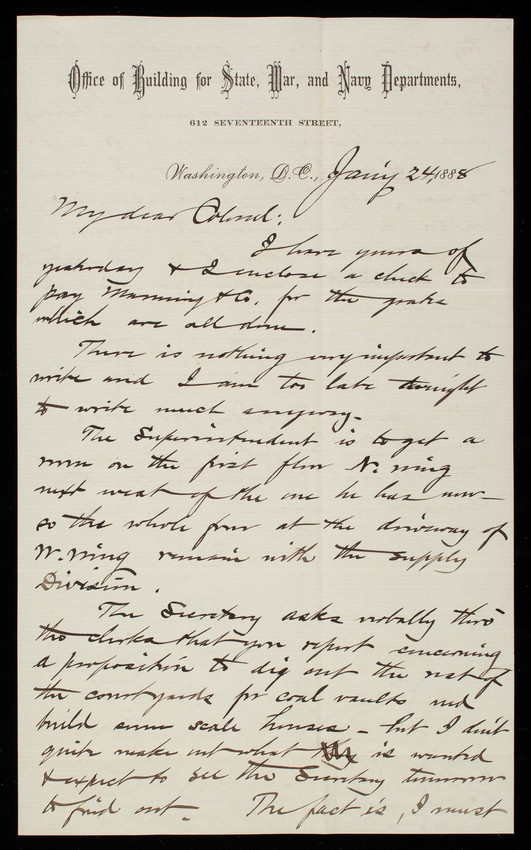 Office of Building for State, War, and Navy Departments,
612 SEVENTEENTH STREET,
Washington, D.C., Jan'y 24, 1888
My dear Colonel:
I have yours of
yesterday & I enclose a check to
pay Manning & Co. for the grates
which are all done.
There is nothing very important to
write and I am too late tonight
to write much anyway.
The Superintendent is to get a
room on the first floor N. wing
next west of the one he has now —
so the whole four at the driveway of
W. wing remain with the supply
Division.
The Secretary asks verbally thro'
the clerks that you report concerning
a proposition to dig out the rest of
the courtyards for coal vaults and
build some scale houses — but I don't
quite make out what is wanted
& expect to see the Secretary tomorrow
to find out. The fact is, I must